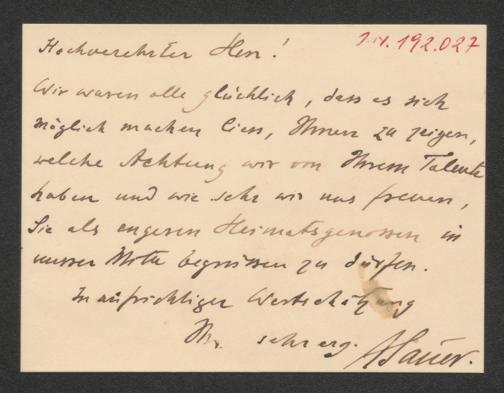 Hochverehrter Herr!
I.N. 192.027
Wir waren alle glücklich, dass es sich
möglich machen liess, Ihnen zu zeigen,
welche Achtung wir von Ihrem Talente
haben und wie sehr wir uns freuen,
Sie als engeren Heimatsgenossen in
unserer Mitte begrüssen zu dürfen.
In aufrichtiger Wertschätzung
Ihr sehr erg. ASauer.